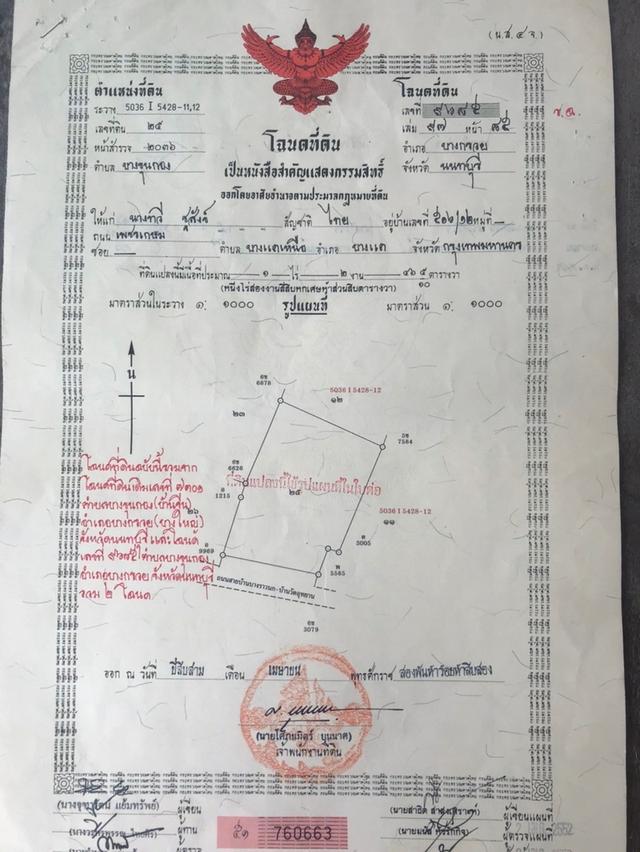 (น.ส. ๔ จ.)
ตำแหน่งที่ดิน
ระวาง 5036 I 5428-11,12
เลขที่ดิน ๒๕
หน้าสำรวจ ๒๐๓๖
ตำบล บางขุนกอง
โฉนดที่ดิน
เลขที่ ๙๖๘๕
เล่ม ๙๗ หน้า ๘๕
อำเภอ บางกรวย
จังหวัด นนทบุรี
โฉนดที่ดิน
เป็นหนังสือสำคัญแสดงกรรมสิทธิ์
ออกโดยอาศัยอำนาจตามประมวลกฎหมายที่ดิน
ให้แก่ สัญชาติ ไทย อยู่บ้านเลขที่ หมู่ที่ —
ถนน เพชรเกษม
ซอย — ตำบล บางแคเหนือ อำเภอ บางแค จังหวัด กรุงเทพมหานคร
ที่ดินแปลงนี้มีเนื้อที่ประมาณ ๑ ไร่ ๒ งาน ๔๖ ๕/๑๐ ตารางวา
(หนึ่งไร่สองงานสี่สิบหกเศษห้าส่วนสิบตารางวา)
มาตราส่วนในระวาง ๑: ๑๐๐๐ รูปแผนที่ มาตราส่วน ๑: ๑๐๐๐
น
อช
6878
5036 I 5428-12
๑๒
๒๓
5ช
7584
อช
6626
อ
1215
ที่ดินแปลงนี้ใช้รูปแผนที่ในใบต่อ
๒๕
5036 I 5428-12
๑๑
๒๖
อ
9969
อ
3005
พ
5565
ถนนสายบ้านบางราวนก-บ้านวัดอุทยาน
อช
3079
โฉนดที่ดินฉบับนี้รวมจาก
โฉนดที่ดินเดิมเลขที่ ๗๓๐๑
ตำบลบางขุนกอง
อำเภอบางกรวย (บางใหญ่)
จังหวัดนนทบุรี และโฉนด
เลขที่ ๙๖๘๕ ตำบลบางขุนกอง
อำเภอบางกรวย จังหวัดนนทบุรี
รวม ๒ โฉนด
ออก ณ วันที่ ยี่สิบสาม เดือน เมษายน พุทธศักราช สองพันห้าร้อยห้าสิบสอง
(นายโศภณมิตร์ บุนนาค)
เจ้าพนักงานที่ดิน
แย้มทรัพย์) ผู้เขียน
ผู้ทาน
ผู้ตรวจ
(นายสาธิต ผู้เขียนแผนที่
ผู้ตรวจ
๕๑ 760663
2552